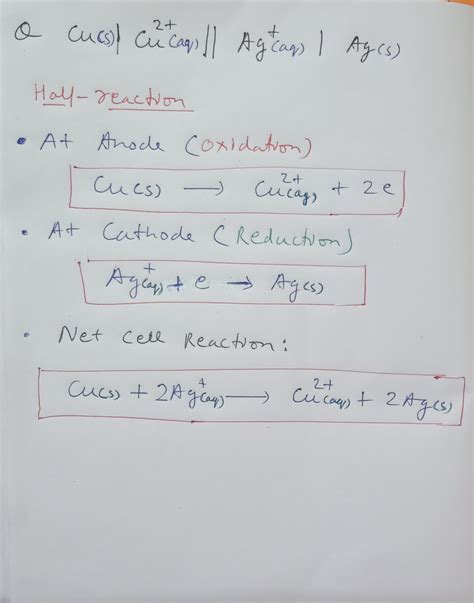 Q Cu(s) | Cu²⁺(aq) || Ag⁺(aq) | Ag(s)
Half-reaction
• At Anode (Oxidation)
Cu(s) → Cu²⁺(aq) + 2e
• At Cathode (Reduction)
Ag⁺(aq) + e → Ag(s)
• Net Cell Reaction:
Cu(s) + 2Ag⁺(aq) → Cu²⁺(aq) + 2Ag(s)